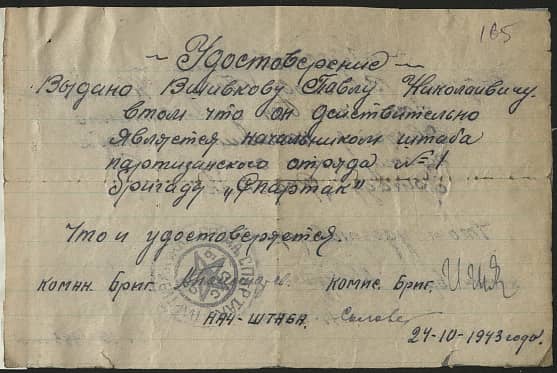 165
~ Удостоверение ~
Выдано Вшивкову Павлу Николаевичу.
в том что он действительно
является начальником штаба
партизанского отряда №1
бригады „Спартак"
Что и удостоверяется.
Комн. Бриг. Комис. Бриг.
НАЧ-ШТАБА.
24-10-1943 года.